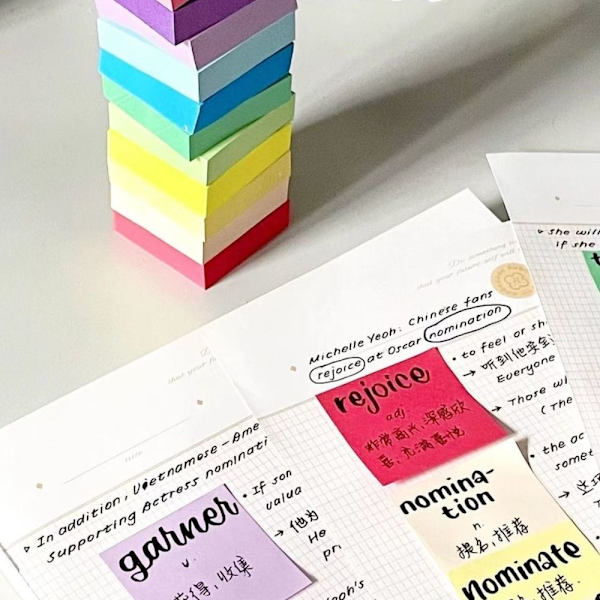 she will
if she
Do something
that your future self will
Michelle Yeoh: Chinese fans
rejoice at Oscar nomination
rejoice
adj.
非常高兴,深感欣
喜,充满喜悦
• to feel or sh
→ 听到他安全
Everyone
→ Those wh
(The
nomina-
tion
n.
提名,推荐
• the ac
somet
Nominate
推荐.
that your f
title
In addition, Vietnamese-Ame
Supporting Actress nominati
garner
v.
获得,收集
• If som
valua
→ 他为
He
pr